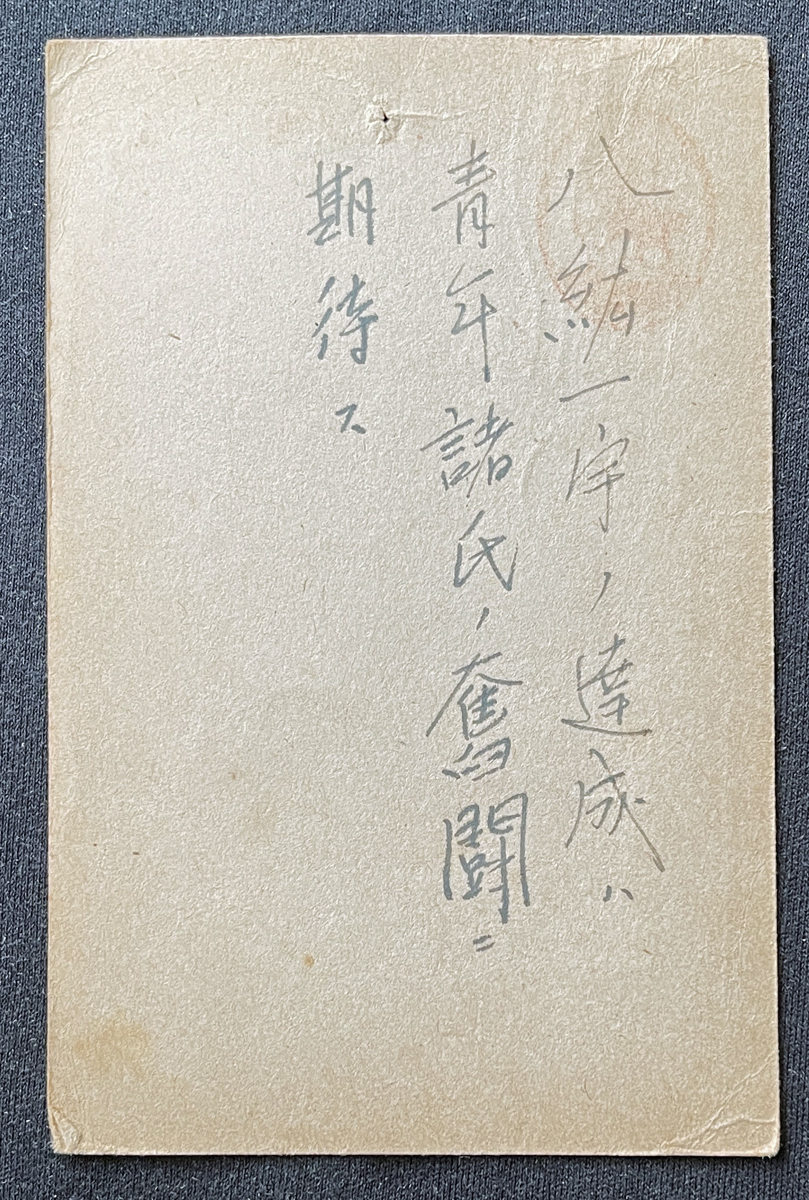 八紘一宇ノ達成ハ
青年諸氏ノ奮闘ニ
期待ス